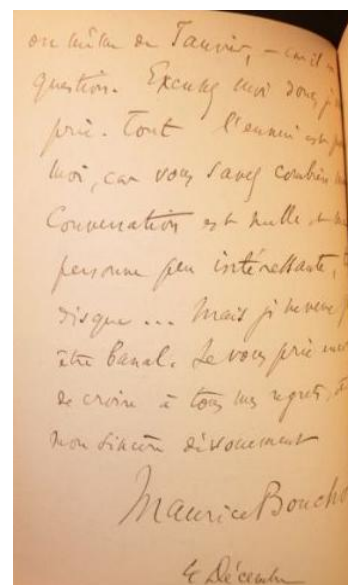 ou milieu de Janvier, – car il
question. Excusez moi donc, j
prie. Tout l'ennui est
moi, car vous savez combien
Conversation est nulle et
personne peu intéressante,
disque ... Mais je ne veux
être banal. Je vous prie
de croire à tous mes regrets,
mon sincère dévouement
Maurice Boucho
4 Décembre